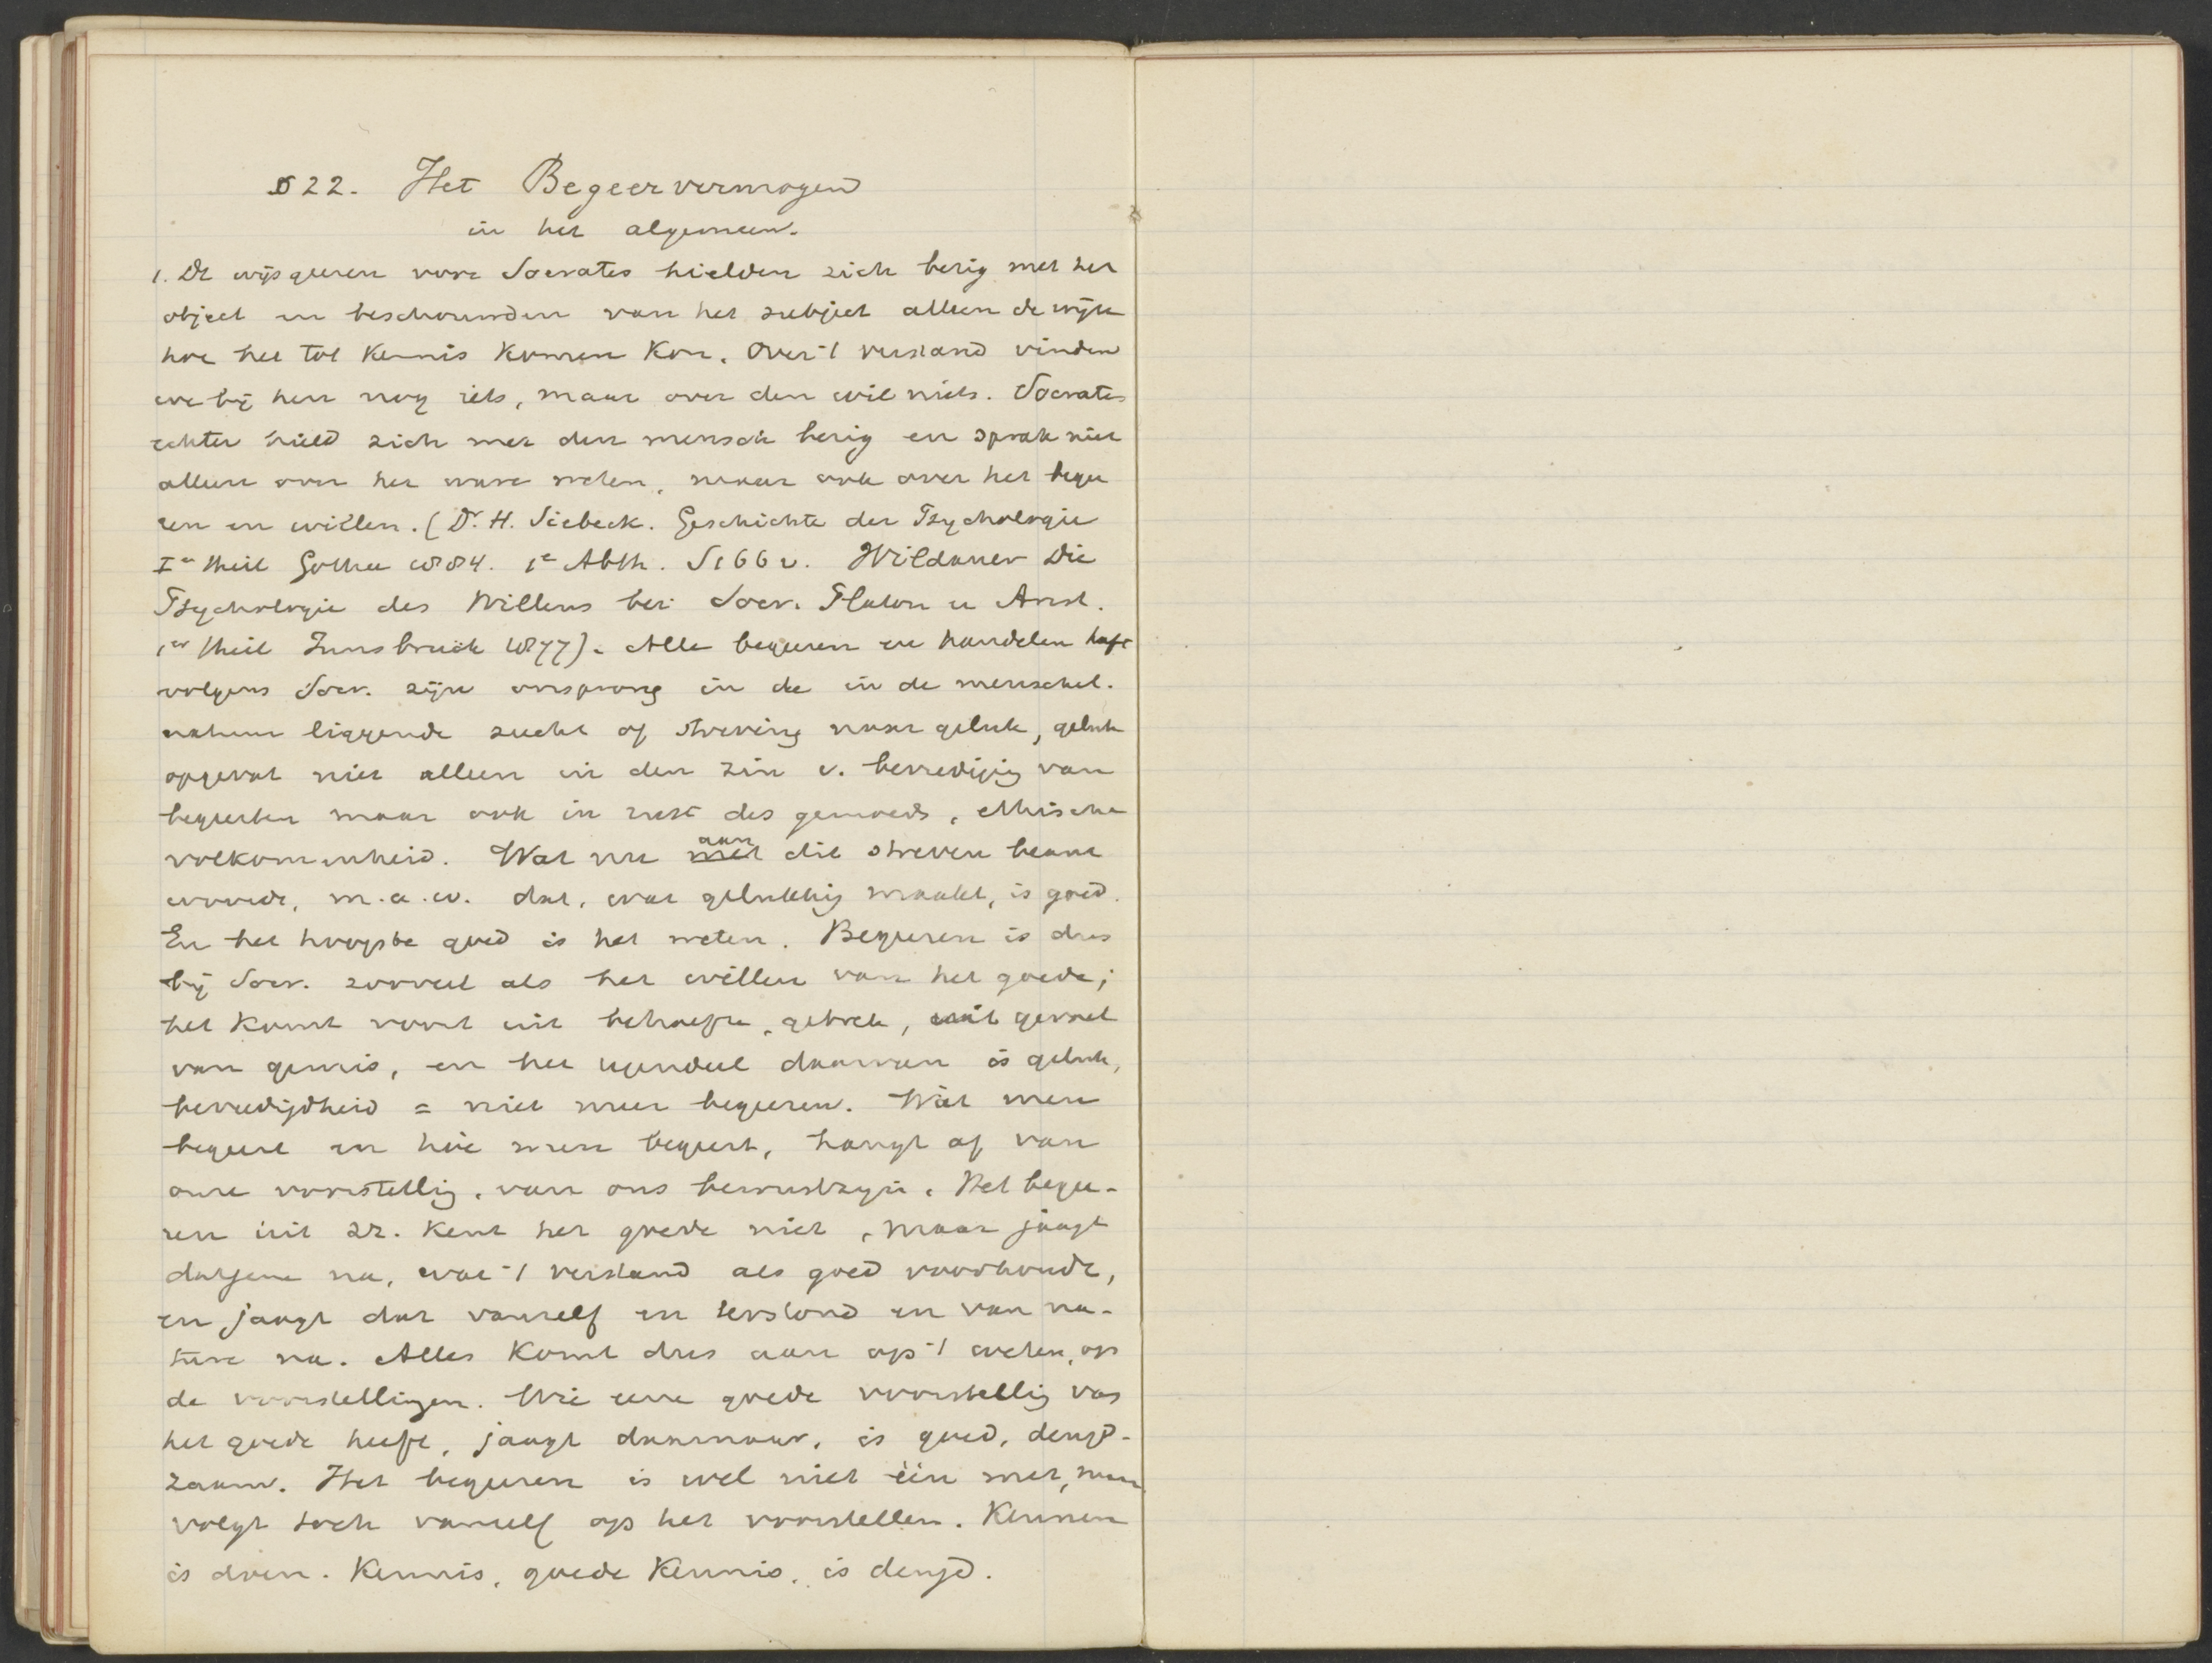 § 22. Het Begeervermogen
in het algemeen.
1. De wijsgeeren voor Socrates hielden zich bezig met het
object en beschouwden van het subject alleen de wijze
hoe het tot kennis komen kon. Over 't verstand vinden
we bij hen nog iets, maar over den wil niets. Socrates
echter hield zich met den mensch bezig en sprak niet
alleen over het ware weten, maar ook over het begee
ren en willen. (Dr. H. Siebeck. Geschichte der Psychologie
Ier Theil Gotha 1884. 1e Abth. S 166 v. Wildauer Die
Psychologie des Willens bei Socr. Platon u Arist.
1er Theil Innsbruck 1877). Alle begeeren en handelen heeft
volgens Socr. zijn oorsprong in de in de menschel.
natuur liggende zucht of streving naar geluk, geluk
opgevat niet alleen in den zin v. bevrediging van
begeerten maar ook in rust des gemoeds, ethische
volkomenheid. Wat nu aan
dit streven beant
woordt, m.a.w. dat, wat gelukkig maakt, is goed.
En het hoogste goed is het weten. Begeeren is dus
bij Socr. zooveel als het willen van het goede;
het komt voort uit behoefte, gebrek, uit gevoel
van gemis, en het tegendeel daarvan is geluk,
bevredigdheid = niet meer begeeren. Wàt men
begeert en hòe men begeert, hangt af van
onze voorstellig, van ons bewustzijn. Het begee-
ren uit zz. kent het goede niet, maar jaagt
datgene na, wat 't verstand als goed voorhoudt,
en jaagt dat vanzelf en terstond en van na-
ture na. Alles komt dus aan op 't weten, op
de voorstellingen. Wie eene goede voorstellig van
het goede heeft, jaagt daarnaar, is goed, deugd-
zaam. Het begeeren is wel niet één met, maar
volgt toch vanzelf op het voorstellen. Kennen
is doen. Kennis, goede Kennis, is deugd.